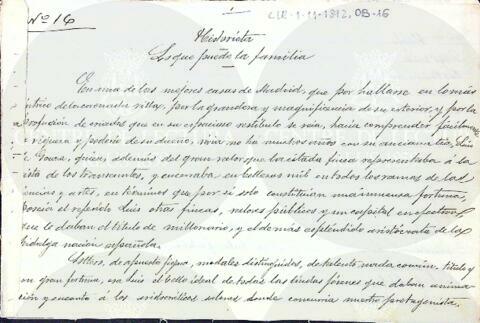 Nº 16
CLR-1-11-1812, OB-16
Historieta
Lo que puede la familia
En una de las mejores casas de Madrid, que por hallarse en lo más
céntrico de la coronada villa, por la grandeza y magnificencia de su exterior, y por la
profusión de criados que en su espacioso vestíbulo se veía, hacía comprender fácilmente
la riqueza y poderío de su dueño, vivía no ha muchos años con su anciana tía, Luis
de Souza, quien, además del gran valor que la citada finca representaba á la
vista de los transeuntes, y encerraba en bellezas mil en todos los ramos de las
ciencias y artes, en términos que por sí solo constituían una inmensa fortuna,
poseía el referido Luis otras fincas, valores públicos y un capital en efectivo
que le daban el título de millonario, y el de más espléndido aristócrata de la
hidalga nación española.
Soltero, de apuesta figura, modales distinguidos, de talento nada común, título y
un gran fortuna, era Luis el bello ideal de todas las lindas jóvenes que daban anima
ción y encanto á los aristocráticos salones donde concurría nuestro protagonista.